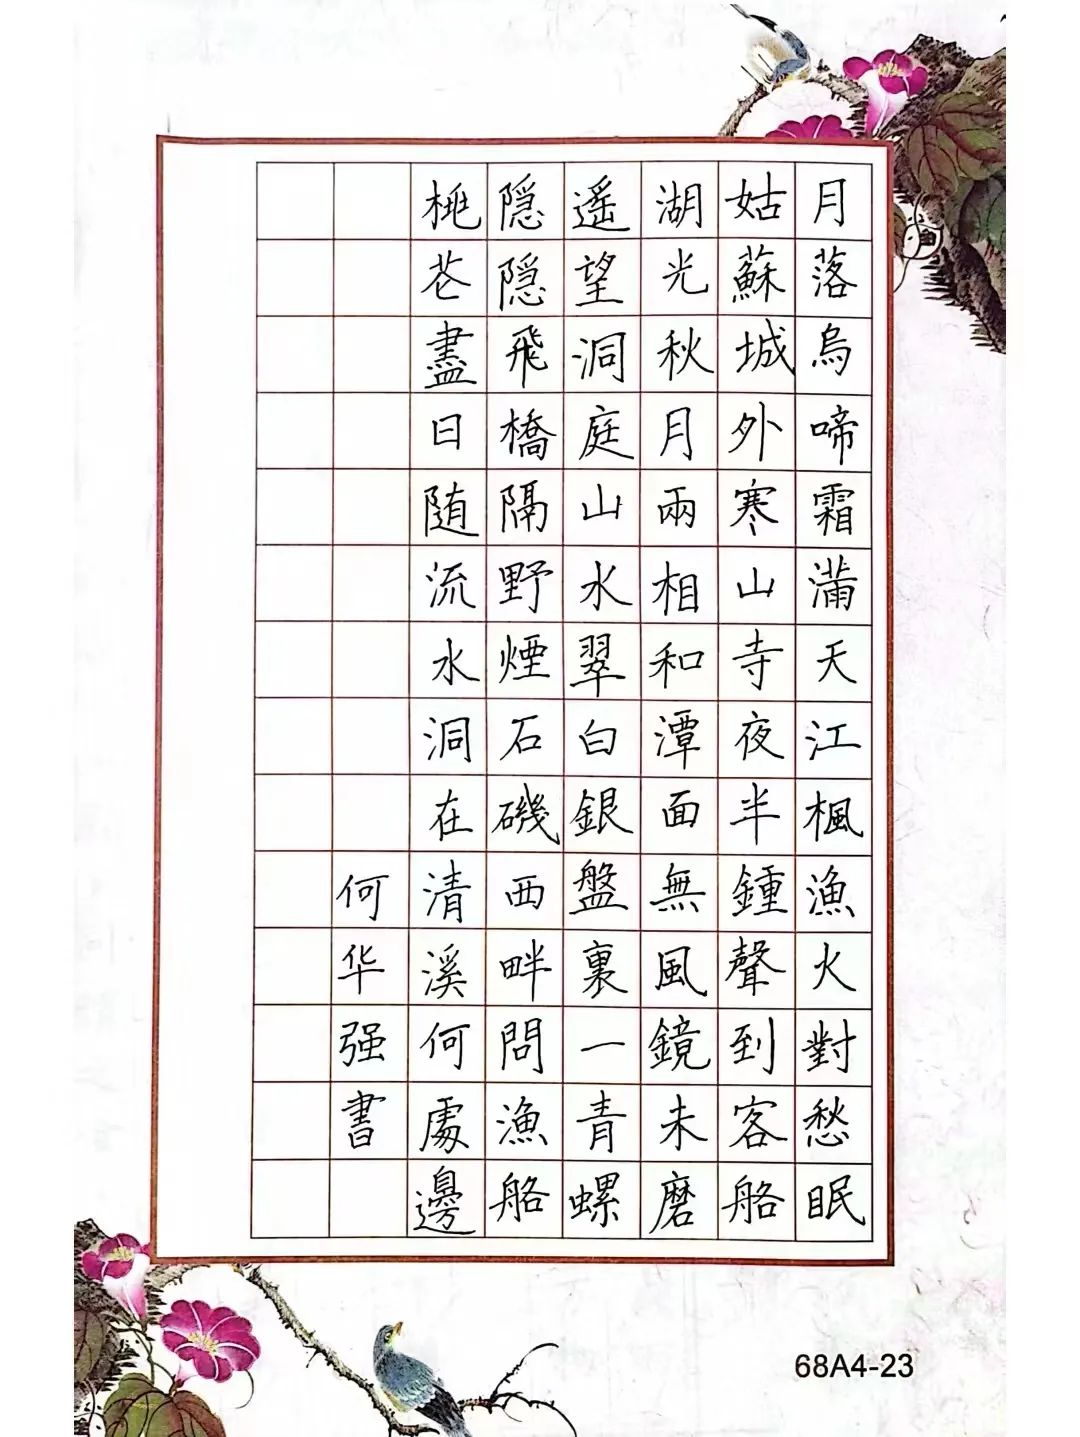 月落烏啼霜滿天江楓漁火對愁眠
姑蘇城外寒山寺夜半鍾聲到客船
湖光秋月兩相和潭面無風鏡未磨
遥望洞庭山水翠白銀盤裏一青螺
隐隐飛橋隔野煙石磯西畔問漁船
桃花盡日随流水洞在清溪何處邊
何华强書
68A4-23